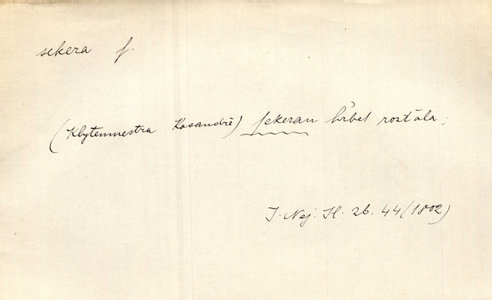 sekera f.
(Klytemnestra Kasandře) sekerau hřbet rozťala,
J. Nej. Il. 26. 44 (1802)